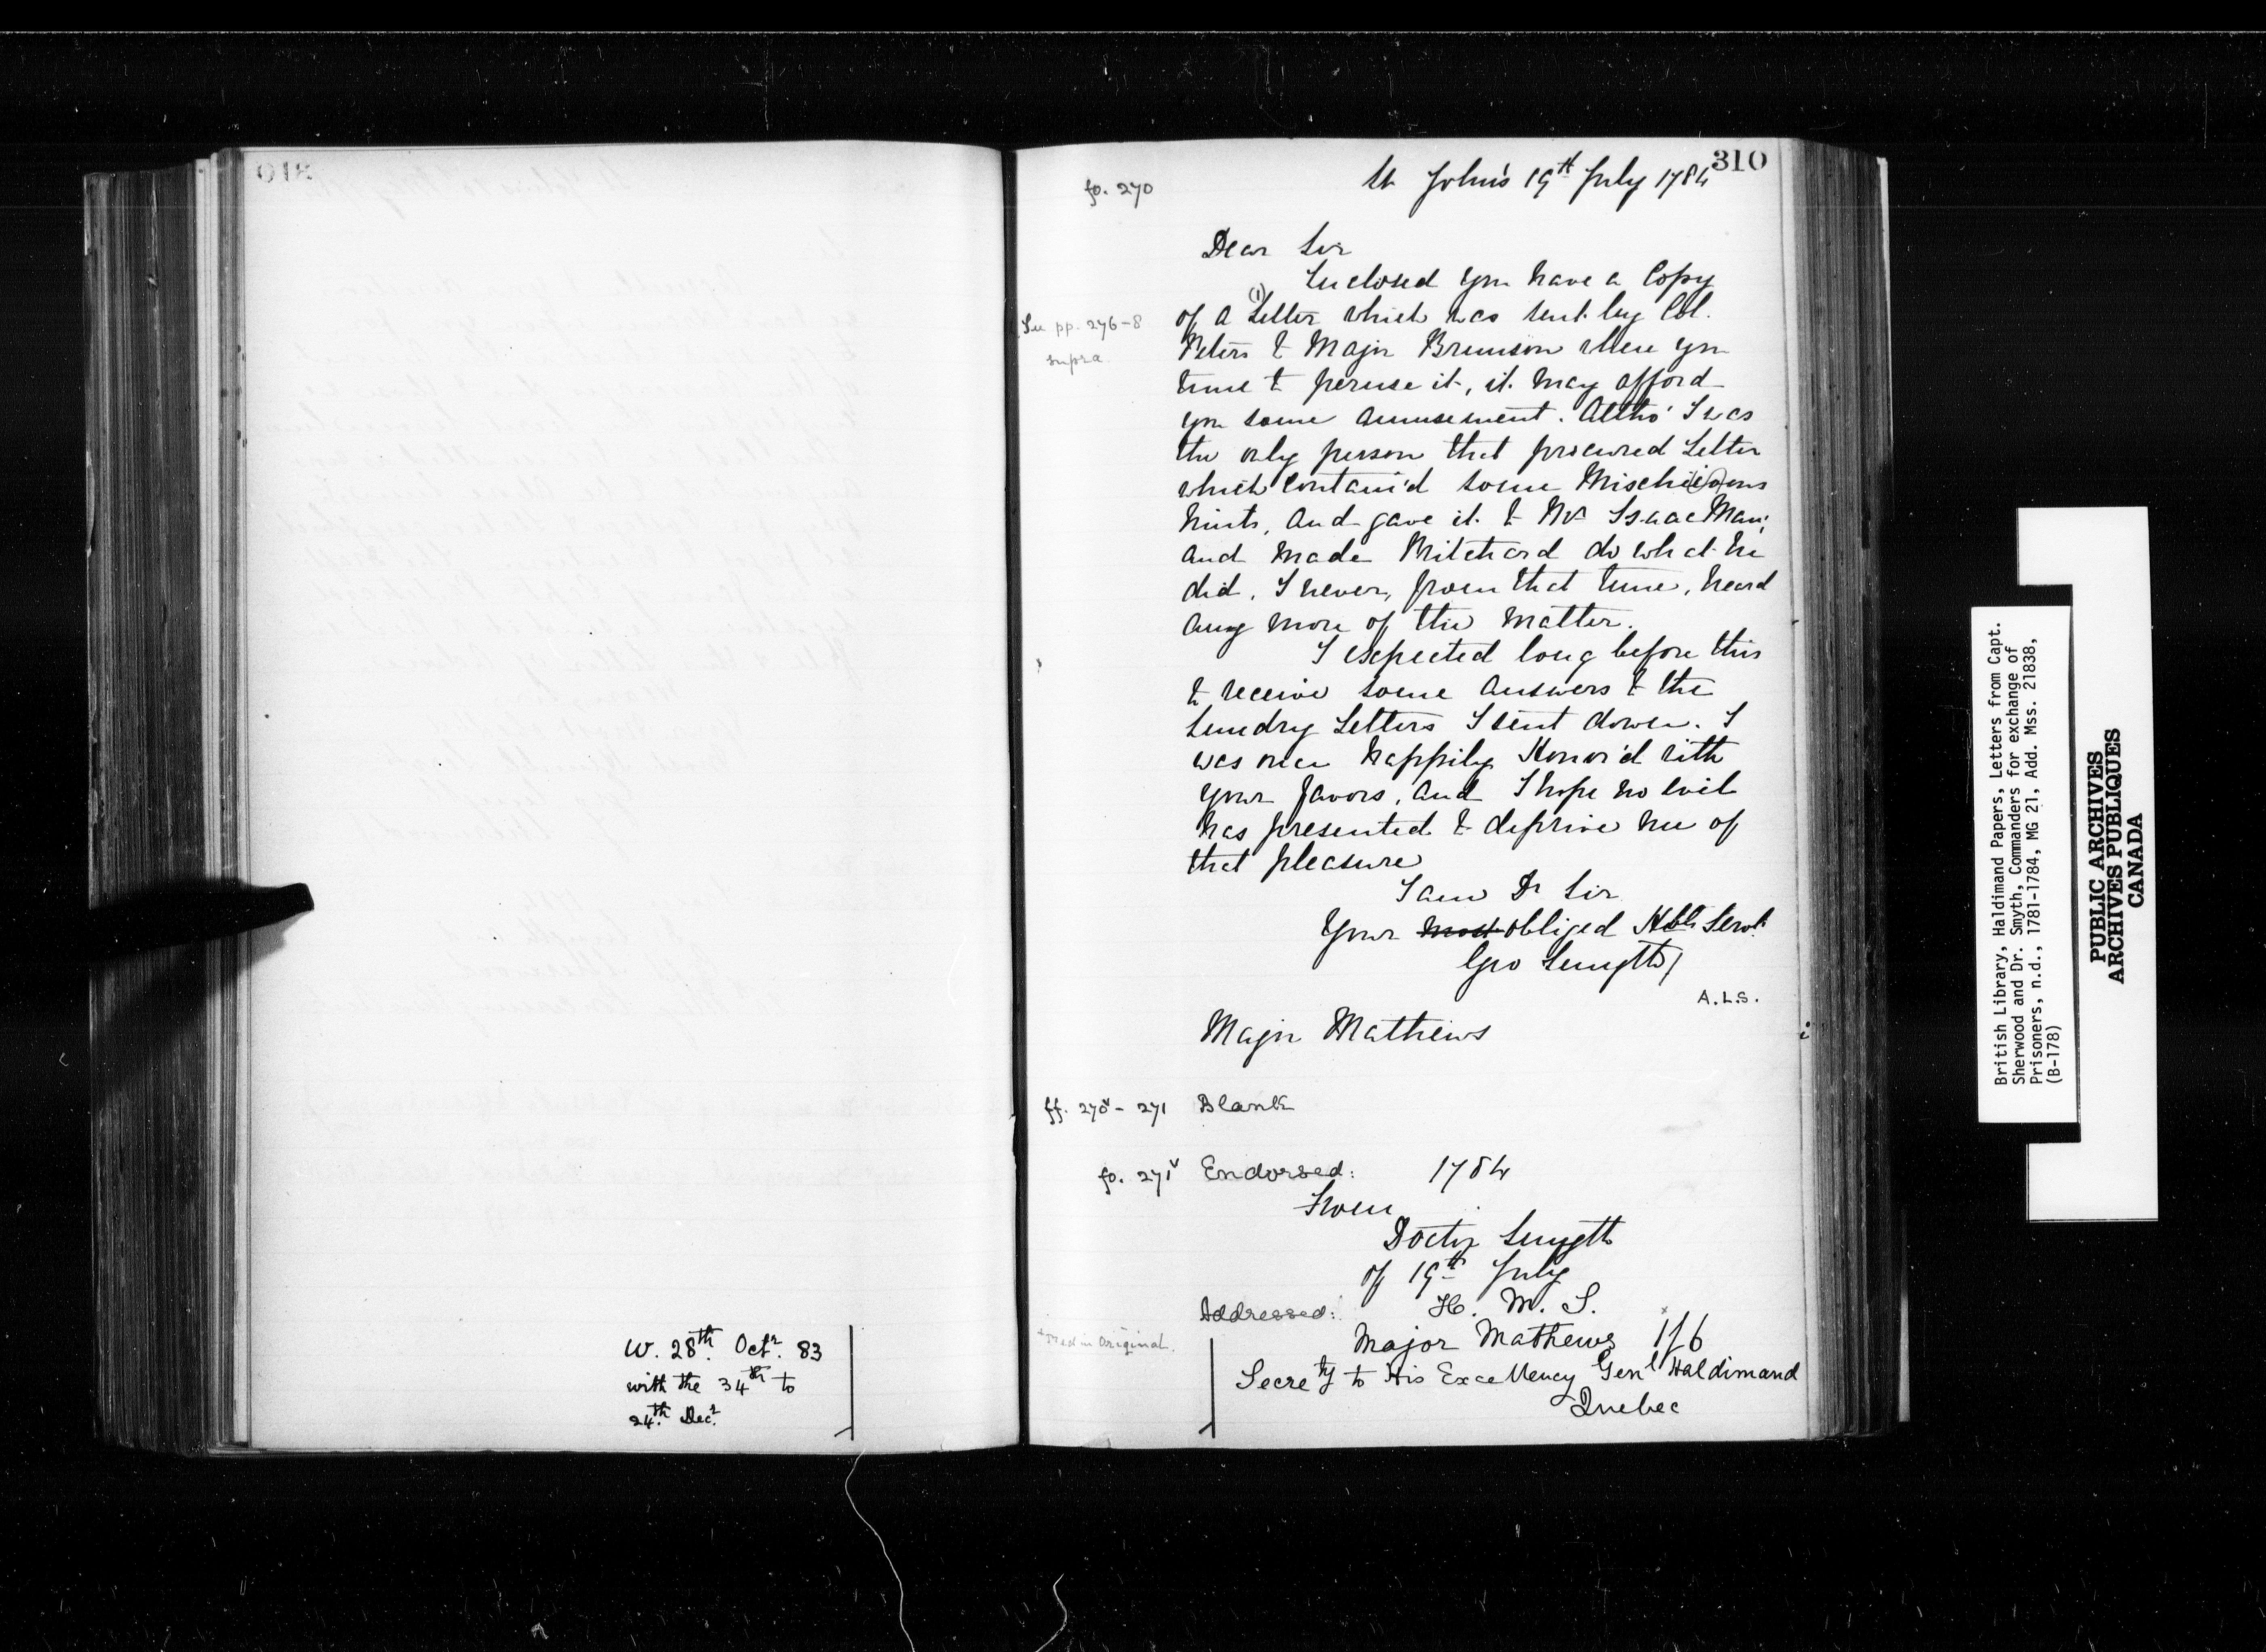 310
fo. 270
St Johns 19th July 1784
Dear Sir
Inclosed you have a Copy
(1)
of a Letter which was sent by Col.
See pp. 276-8
supra
Peters & Major Brunson when you
time to peruse it, it may afford
you some amusement. Altho' I was
the only person that procured Letter
which contain'd some Mischi(e)vous
hints, and gave it to Mr Isaac Man;
and made Pritchard do what he
did, I never, from that time, heard
any more of the matter.
I expected long before this
to receive some answers to the
sundry Letters I sent down. I
was once happily Honor'd with
your favors, and I hope no evil
has presented to deprive me of
that pleasure
I am Dr Sir
Your most obliged Hble Servt.
Geo Smyth
A.L.S.
Major Mathews
ff. 270v - 271 Blank
fo. 271v Endorsed: 1784
From
Doctor Smyth
of 19th July
Addressed: H. M. S.
Major Mathews
Secrety to His Excellency Genl Haldimand
Quebec
in Original.
W. 28th. Octr. 83
with the 34th to
24th. Decr.
British Library, Haldimand Papers, Letters from Capt.
Sherwood and Dr. Smyth, Commanders for exchange of
Prisoners, n.d., 1781-1784, MG 21, Add. Mss. 21838,
(B-178)
PUBLIC ARCHIVES
ARCHIVES PUBLIQUES
CANADA